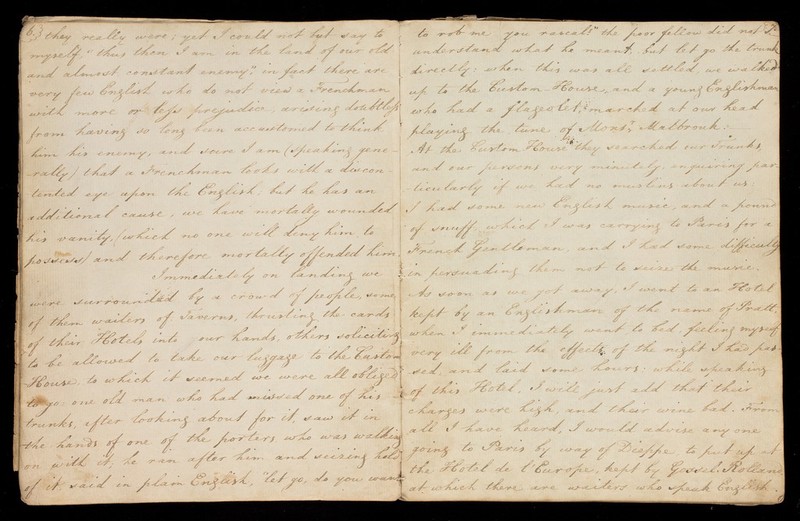 6.) they really were; yet I could not but say to
myself "thus then I am in the land of our old
and almost constant enemy"; in fact there are
very few English who do not view a Frenchman
with more or less prejudice, arising doubtless
from having so long been accustomed to think
him his enemy, and sure I am (speaking gene-
-rally) that a Frenchman looks with a discon-
tented eye upon the English; but he has an
additional cause, we have mortally wounded
his vanity, (which no one will deny him to
possess) and therefore mortally offended him.
Immediately on landing we
were surrounded by a crowd of people, some
of them waiters of Taverns, thrusting the cards
of their Hotels into our hands, others soliciting
to be allowed to take our luggage to the Custom
House, to which it seemed we were all obliged
to go one old man who had missed one of his
trunks, after looking about for it, saw it in
the hands of one of the porters who was walking
on with it, he ran after him and seizing hold
of it said in plain English, "let go, do you want
to rob me you rascal" the poor fellow did not
understand what he meant, but let go the trunk
directly; when this was all settled, we walked
up to the Custom House, and a young Englishman
who had a flageolet, marched at our head
playing the tune of Malbrouk.
At the Custom House they searched our Trunks,
and our persons very minutely enquiring par
ticularly if we had no muslins about us
I had some new English music, and a pound
of snuff which I was carrying to Paris for a
French Gentleman, and I had some difficulty
in persuading them not to seize the music.
As soon as we got away, I went to an Hotel
kept by an Englishman of the name of Pratt,
when I immediately went to bed, feeling myself
very ill from the effects of the night I had pas
sed, and laid some hours; while speaking
of this Hotel, I will just add that their
charges were high, and their wine bad. From
all I have heard, I would advise any one
going to Paris by way of Dieppe, to put up at
the Hotel de l'Europe, kept by
at which there are waiters who speak English.